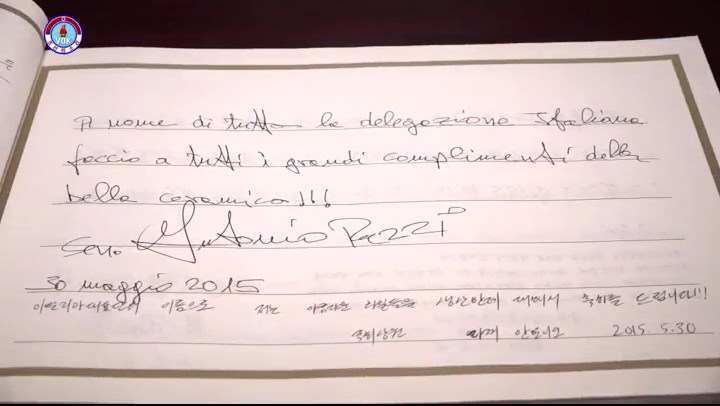 VOK
A nome di tutta la delegazione Italiana
faccio a tutti i grandi complimenti della
bella ceramica!!!
Sen. Antonio Razzi
30 maggio 2015
이딸리아대표단의 이름으로 저는 아름다운 생산한데 대해서 축하를 드립니다!!!
국회상원 라찌 안또니오 2015. 5. 30